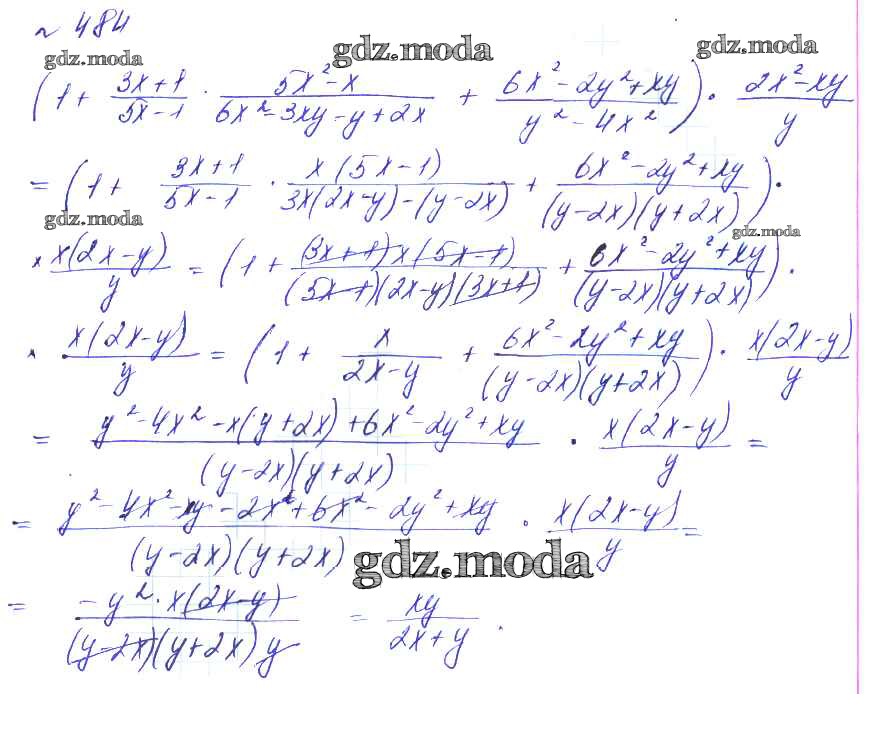 № 484
gdz.moda gdz.moda gdz.moda
(1 + (3x+1)/(5x-1) · (5x²-x)/(6x²-3xy-y+2x) + (6x²-2y²+xy)/(y²-4x²)) · (2x²-xy)/y
= (1 + (3x+1)/(5x-1) · x(5x-1)/(3x(2x-y)-(y-2x)) + (6x²-2y²+xy)/((y-2x)(y+2x))) ·
gdz.moda gdz.moda
× x(2x-y)/y = (1 + (3x+1)x(5x-1)/((5x-1)(2x-y)(3x+1)) + (6x²-2y²+xy)/((y-2x)(y+2x))) ·
· x(2x-y)/y = (1 + x/(2x-y) + (6x²-2y²+xy)/((y-2x)(y+2x))) · x(2x-y)/y
= (y²-4x²-x(y+2x)+6x²-2y²+xy)/((y-2x)(y+2x)) · x(2x-y)/y =
= (y²-4x²-xy-2x²+6x²-2y²+xy)/((y-2x)(y+2x)) · x(2x-y)/y =
gdz.moda
= (-y²·x(2x-y))/((y-2x)(y+2x)y) = xy/(2x+y).